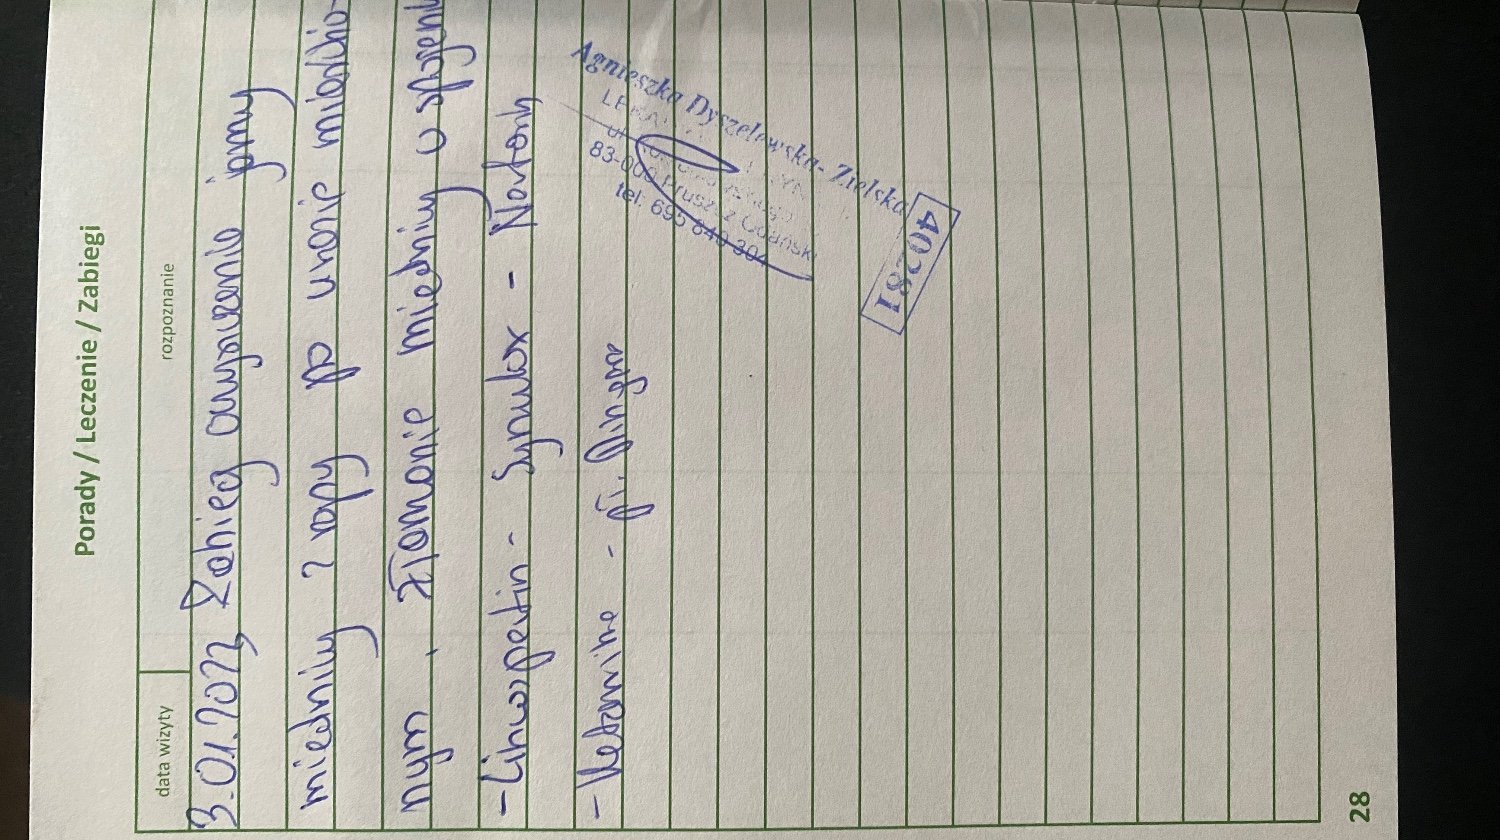 Porady / Leczenie / Zabiegi
data wizyty rozpoznanie
3.01.2022 Zabieg oczyszczenia jamy
miednicy z ropy po urazie miednic-
nym. Złamanie miednicy w spojeniu
- Linwospectin - Synulox -
- Ketamina -
Agnieszka Dyszelewska-Zielska
83-000 Pruszcz Gdański
tel. 695 840 304
40281
28